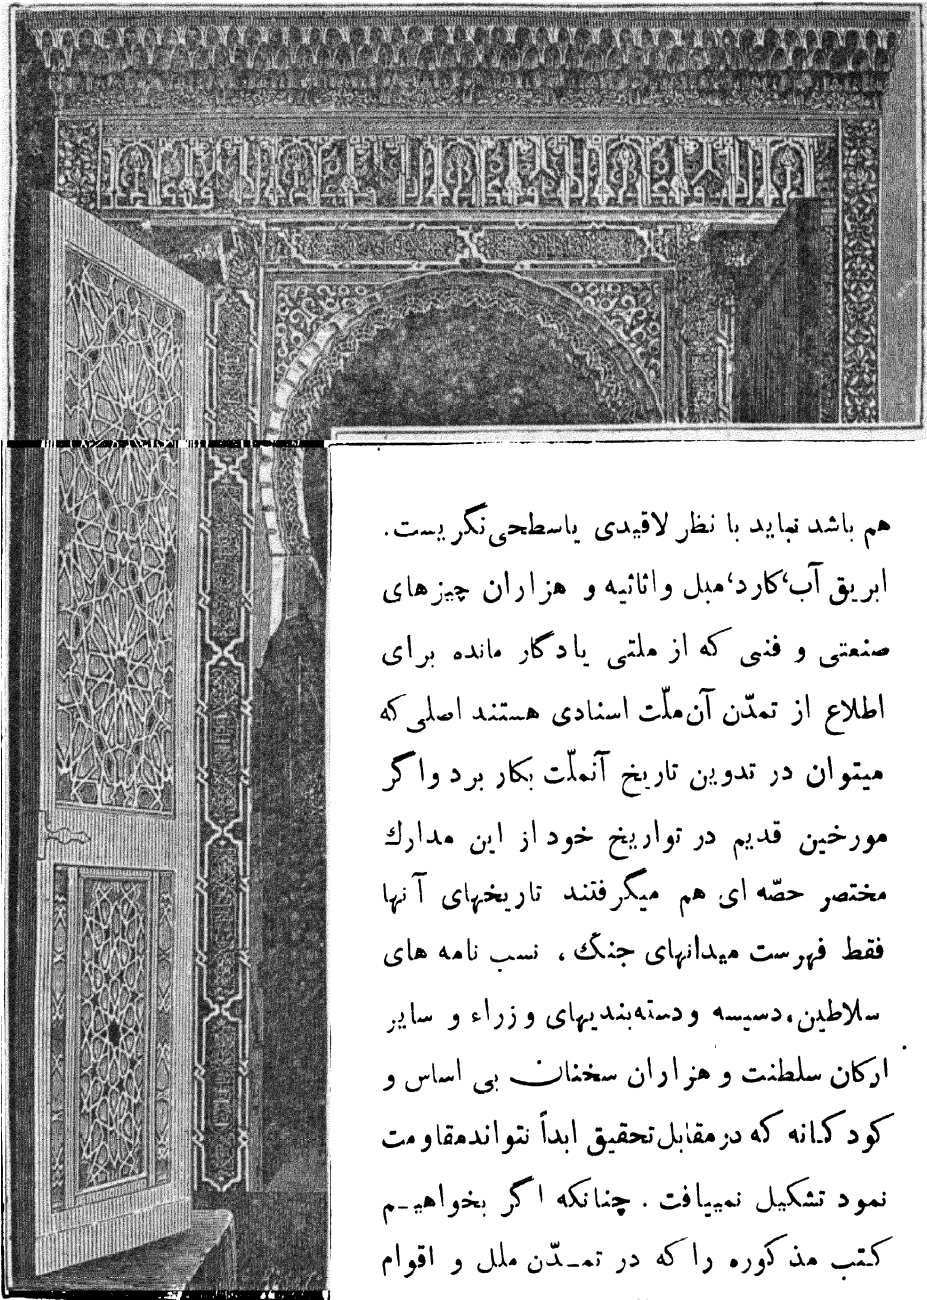 هم باشد نباید با نظر لاقیدی یاسطحی‌نگریست.
ابریق آب‘کارد‘مبل واثاثیه و هزاران چیزهای
صنعتی و فنی که از ملتی یادگار مانده برای
اطلاع از تمدّن آن‌ملّت اسنادی هستند اصلی‌که
میتوان در تدوین تاریخ آنملّت بکار برد واگر
مورخین قدیم در تواریخ خود از این مدارك
مختصر حصّه ای هم میگرفتند تاریخهای آنها
فقط فهرست میدانهای جنگ ، نسب نامه های
سلاطین،دسیسه ودسته‌بندیهای وزراء و سایر
ارکان سلطنت و هزاران سخنان بی اساس و
کودکانه که درمقابل‌تحقیق ابداً نتواندمقاومت
نمود تشکیل نمییافت . چنانکه اگر بخواهیـم
کتب مذکوره را که در تمـدّن ملل و اقوام